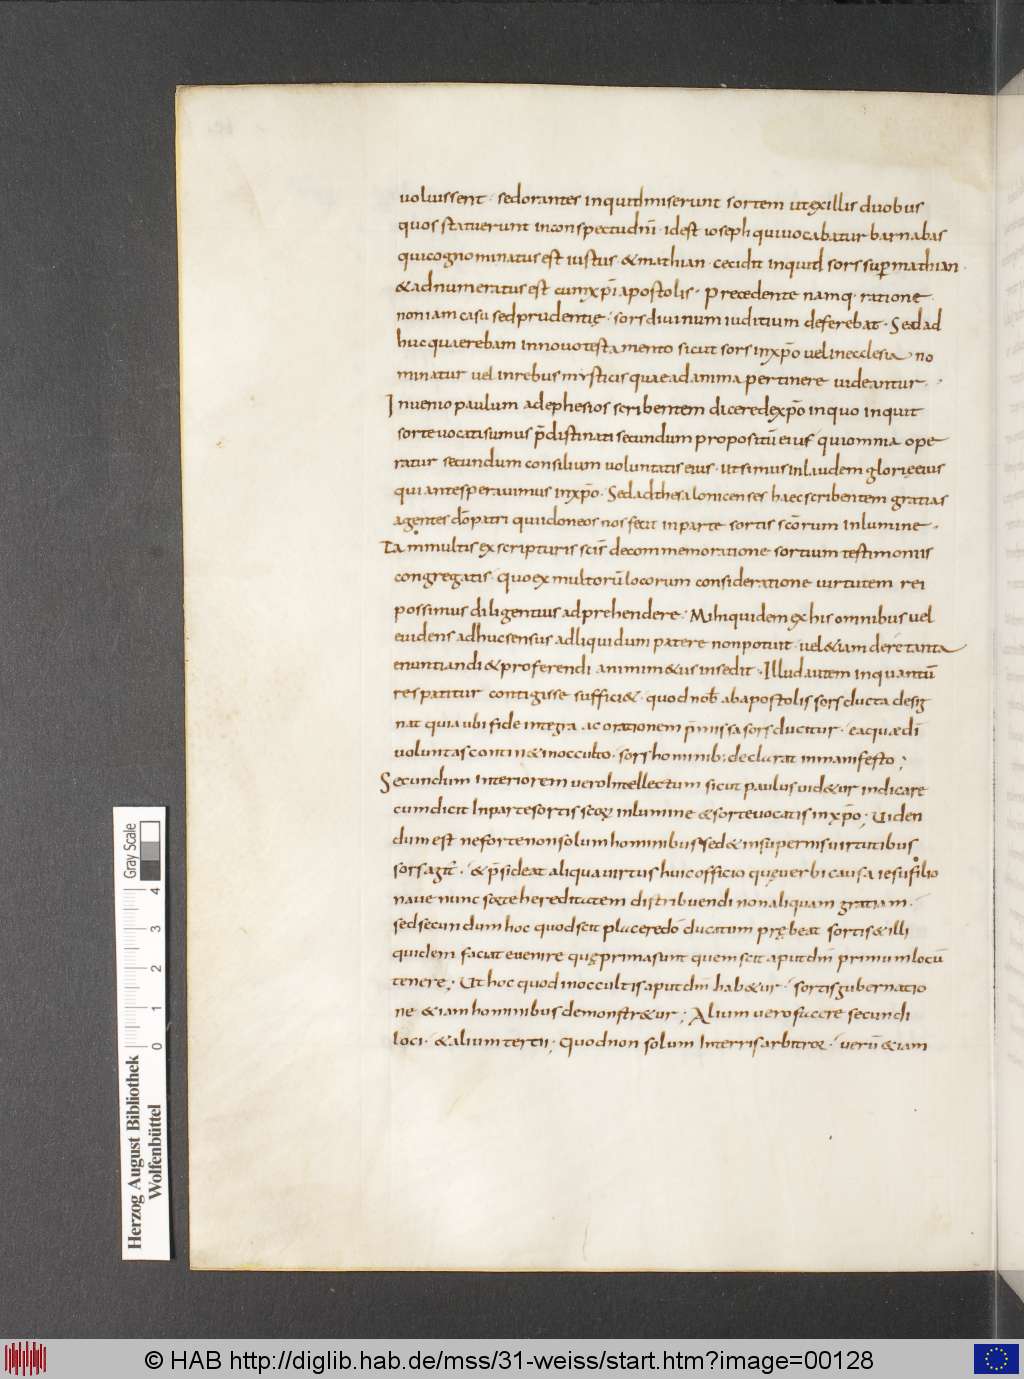 uoluissent · sed orantes inquid miserunt sortem ut ex illis duobus
quos statuerunt in conspectu dnī · id est ioseph qui uocabatur barnabas
qui cognominatus est iustus · & mathian · cecidit inquid sors sup mathian ·
& adnumeratus est cum xp̄i apostolis · precedente namq · ratione ·
non iam casu sed prudentię · sors diuinum iuditium deferebat · Sed ad
huc quaerebam in nouo testamento sicut sors in xp̄o uel in ecclesia · no
minatur uel in rebus mysticis quae ad anima pertinere uideantur ·
Inuenio paulum ad ephesios scribentem dicere de xp̄o in quo inquit
sorte uocati sumus p̄distinati secundum propositū eius qui omnia ope
ratur secundum consilium uoluntatis eius · ut simus in laudem glorię eius
qui ante sperauimus in xp̄o · Sed ad thesalonicenses haec scribentem gratias
agentes dō patri qui idoneos nos fecit in parte sortis scōrum in lumine ·
Tam multis ex scripturis scīs de commemoratione sortium testimoniis
congregatis · quo ex multorū locorum consideratione uirtutem rei
possimus diligentius adprehendere · Mihi quidem ex his omnibus uel
euidens adhuc sensus ad liquidum patere non potuit · uel &iam de re tanta
enuntiandi & proferendi animi m&us insedit · Illud autem in quantū
res patitur contigisse suffici& · quod nob̄ ab apostolis sors ducta desig
nat quia ubi fide integra ac orationem p̄missa sors ducitur · ea quæ dī
uoluntas contin& in occulto · sors hominib; declarat in manifesto ;
Secundum interiorem uero intellectum sicut paulus uid&ur indicare
cum dicit In parte sortis scōꝝ in lumine & sorte uocatis in xp̄o ; Uiden
dum est ne forte non solum hominibus sed & in supernis uirtutibus
sors agit̄ · & p̄sideat aliqua uirtus huic officio quę uerbi causa iesu filio
naue nunc sorte hereditatem distribuendi non aliquam gratiam ·
sed secundum hoc quod scit placere dō ducatum prębeat sortis & illi
quidem faciat euenire quę prima sunt quem scit aput dm̄ primum locū
tenere ; Ut hoc quod in occultis aput dm̄ hab&ur · sortis gubernatio
ne &iam hominibus demonstr&ur ; Alium uero facere secundi
loci · & alium tertii ; Quod non solum In terris arbitror · uerū &iam
Gray Scale
0 1 2 3 4
Herzog August Bibliothek
Wolfenbüttel
© HAB http://diglib.hab.de/mss/31-weiss/start.htm?image=00128